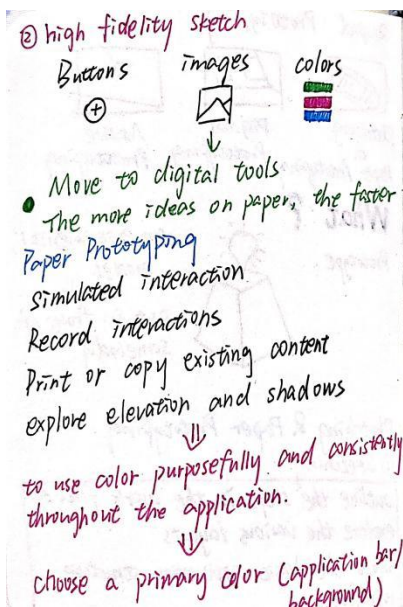 ② high fidelity sketch
Buttons images colors
Move to digital tools
The more ideas on paper, the faster
Paper Prototyping
Simulated interaction
Record interactions
Print or copy existing content
explore elevation and shadows
to use color purposefully and consistently
throughout the application.
choose a primary color (application bar/
background)